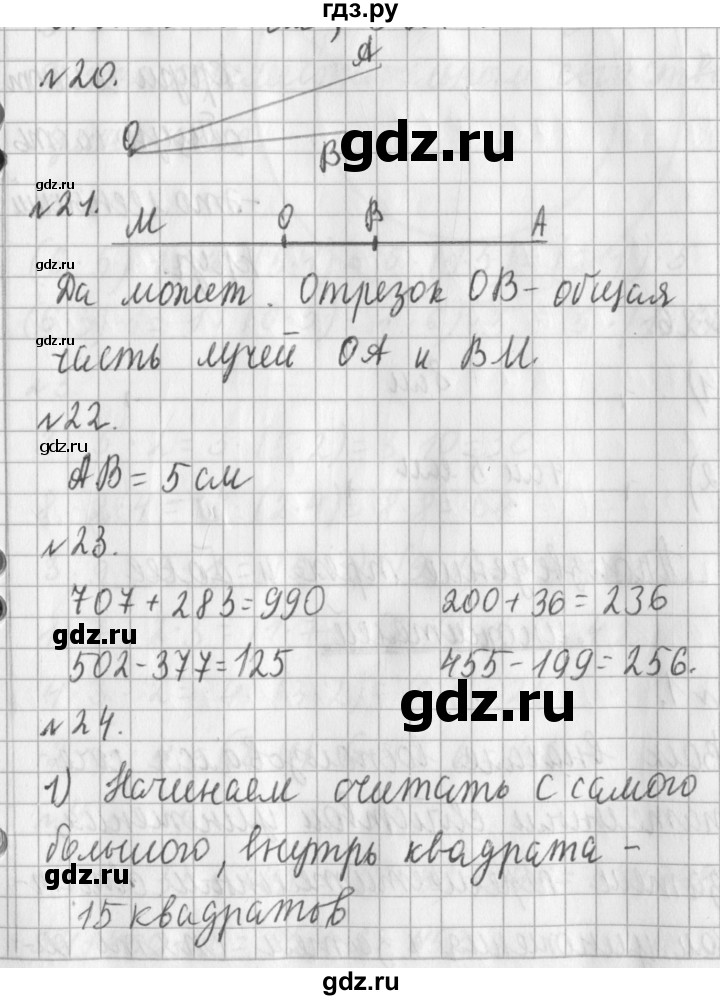 гдз.ру
№20.
A
O
B
gdz.ru
gdz.ru
№21.
M O B A
gdz.ru
Да может. Отрезок OB - общая
gdz.ru
часть лучей OA и BM.
№22.
gdz.ru
AB = 5 см
№23.
707 + 283 = 990 200 + 36 = 236
gdz.ru
502 - 377 = 125 455 - 199 = 256.
gdz.ru
№24.
1) Начинаем считать с самого
большого, внутрь квадрата -
gdz.ru
15 квадратов
gdz.ru